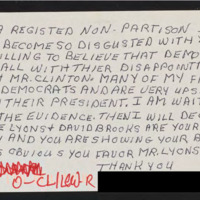 A REGISTERED NON. PARTISON
BECOME SO DISGUSTED WITH
ILLING TO BELIEVE THAT DEMO
ALL WITH THIER DISAPPOINT
MR. CLINTON. MANY OF MY F
DEMOCRATS AND ARE VERY UPS
THEIR PRESIDENT. I AM WAIT
THE EVIDENCE. THEN I WILL DEC
E LYONS & DAVID BROOKS ARE YOUR
Y AND YOU ARE SHOWING YOUR B
S OBVIOUS YOU FAVOR MR. LYONS
THANK YOU